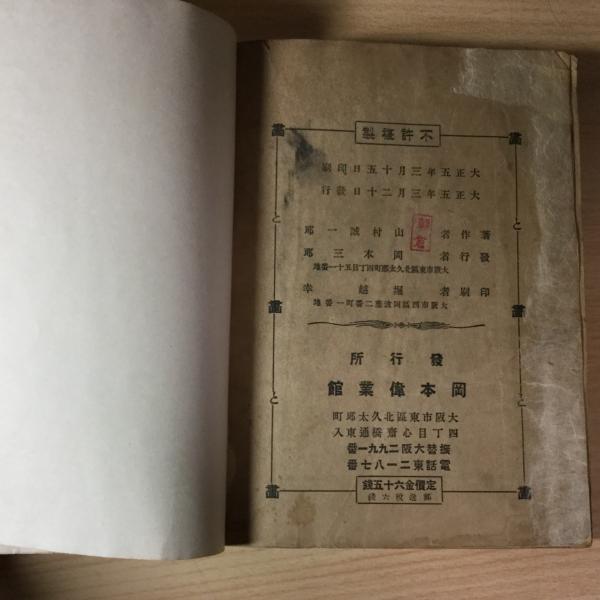 不許複製
大正五年三月十五日印刷
大正五年三月二十日發行
著作者 山村誠一郎
發行者 岡本三郎
大阪市東區北久太郎町四丁目五十一番地
印刷者 堀越幸
大阪市西區阿波座二番町一番地
發行所
岡本偉業館
大阪市東區北久太郎町
四丁目心齋橋通東入
振替大阪二九九一番
電話東二一八七番
定價金六十五錢
郵送稅六錢